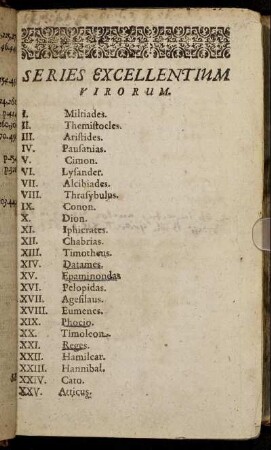 SERIES EXCELLENTIUM
VIRORUM.
I. Miltiades.
II. Themistocles.
III. Aristides.
IV. Pausanias.
V. Cimon.
VI. Lysander.
VII. Alcibiades.
VIII. Thrasybulus.
IX. Conon.
X. Dion.
XI. Iphicrates.
XII. Chabrias.
XIII. Timotheus.
XIV. Datames.
XV. Epaminondas.
XVI. Pelopidas.
XVII. Agesilaus.
XVIII. Eumenes.
XIX. Phocio.
XX. Timoleon.
XXI. Reges.
XXII. Hamilcar.
XXIII. Hannibal.
XXIV. Cato.
XXV. Atticus.